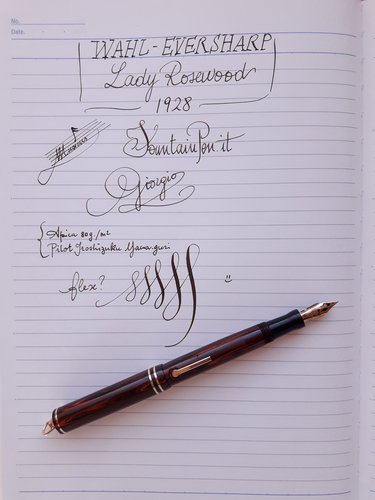 No.
Date.
WAHL-EVERSHARP
Lady Rosewood
1928
FountainPen.it
Giorgio
Apica 80g/m²
Pilot Iroshizuku Yama-guri
flex?